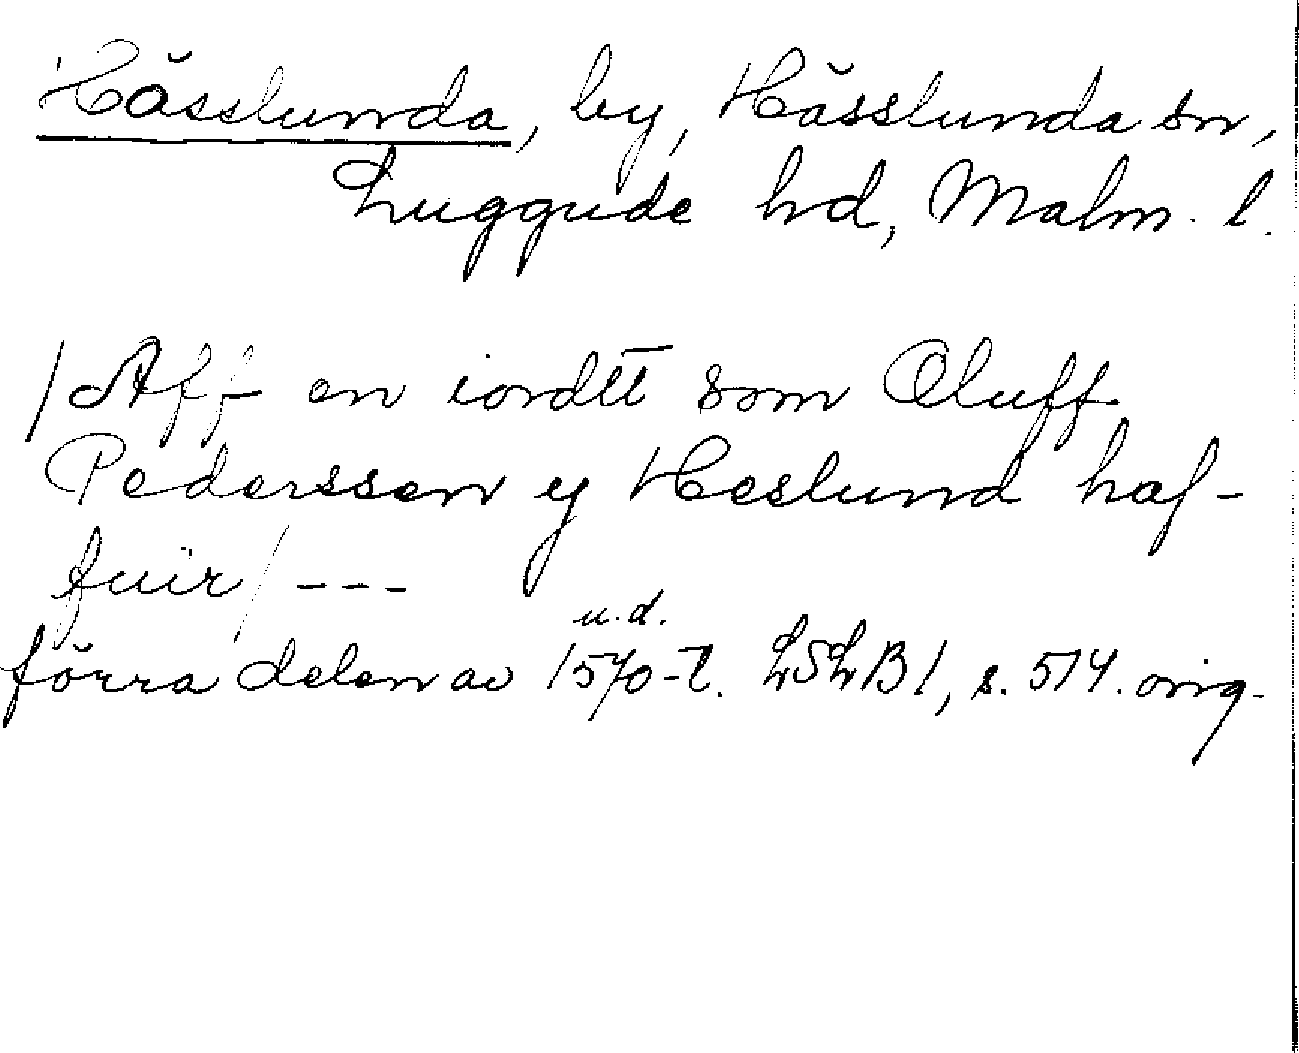 Hässlunda, by, Hässlunda sn,
Luggude hd, Malm. l.
/Aff en iordtt som Oluff
Pederssen y Heslund haf-
fuir/ ---
u. d.
förra delen av 1570-t. LSLB 1, s. 514. orig.